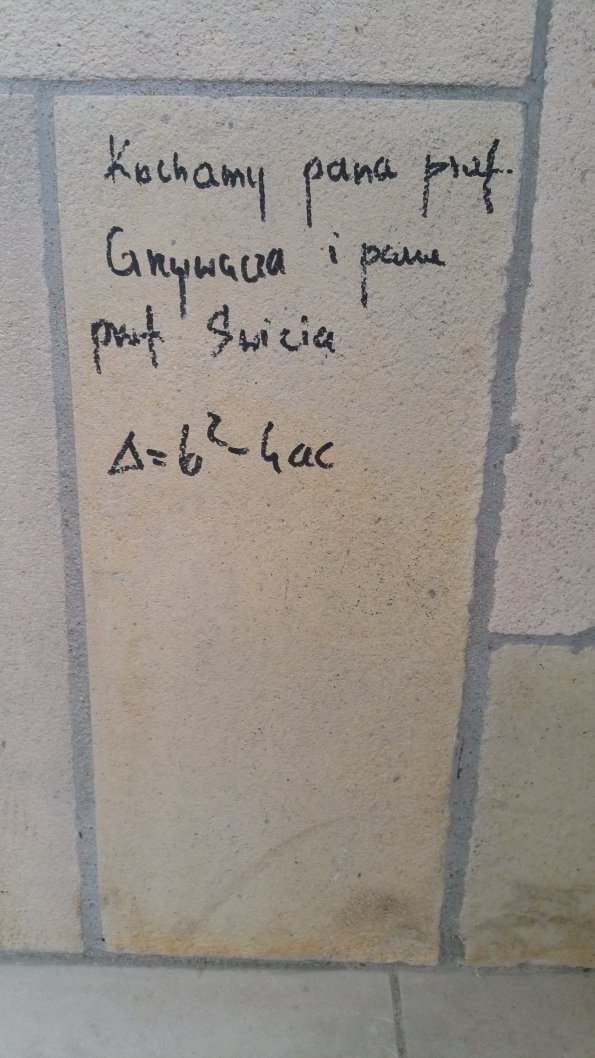 Kochamy pana prof.
Grzywacza i pana
prof Świcia
Δ=b²-4ac